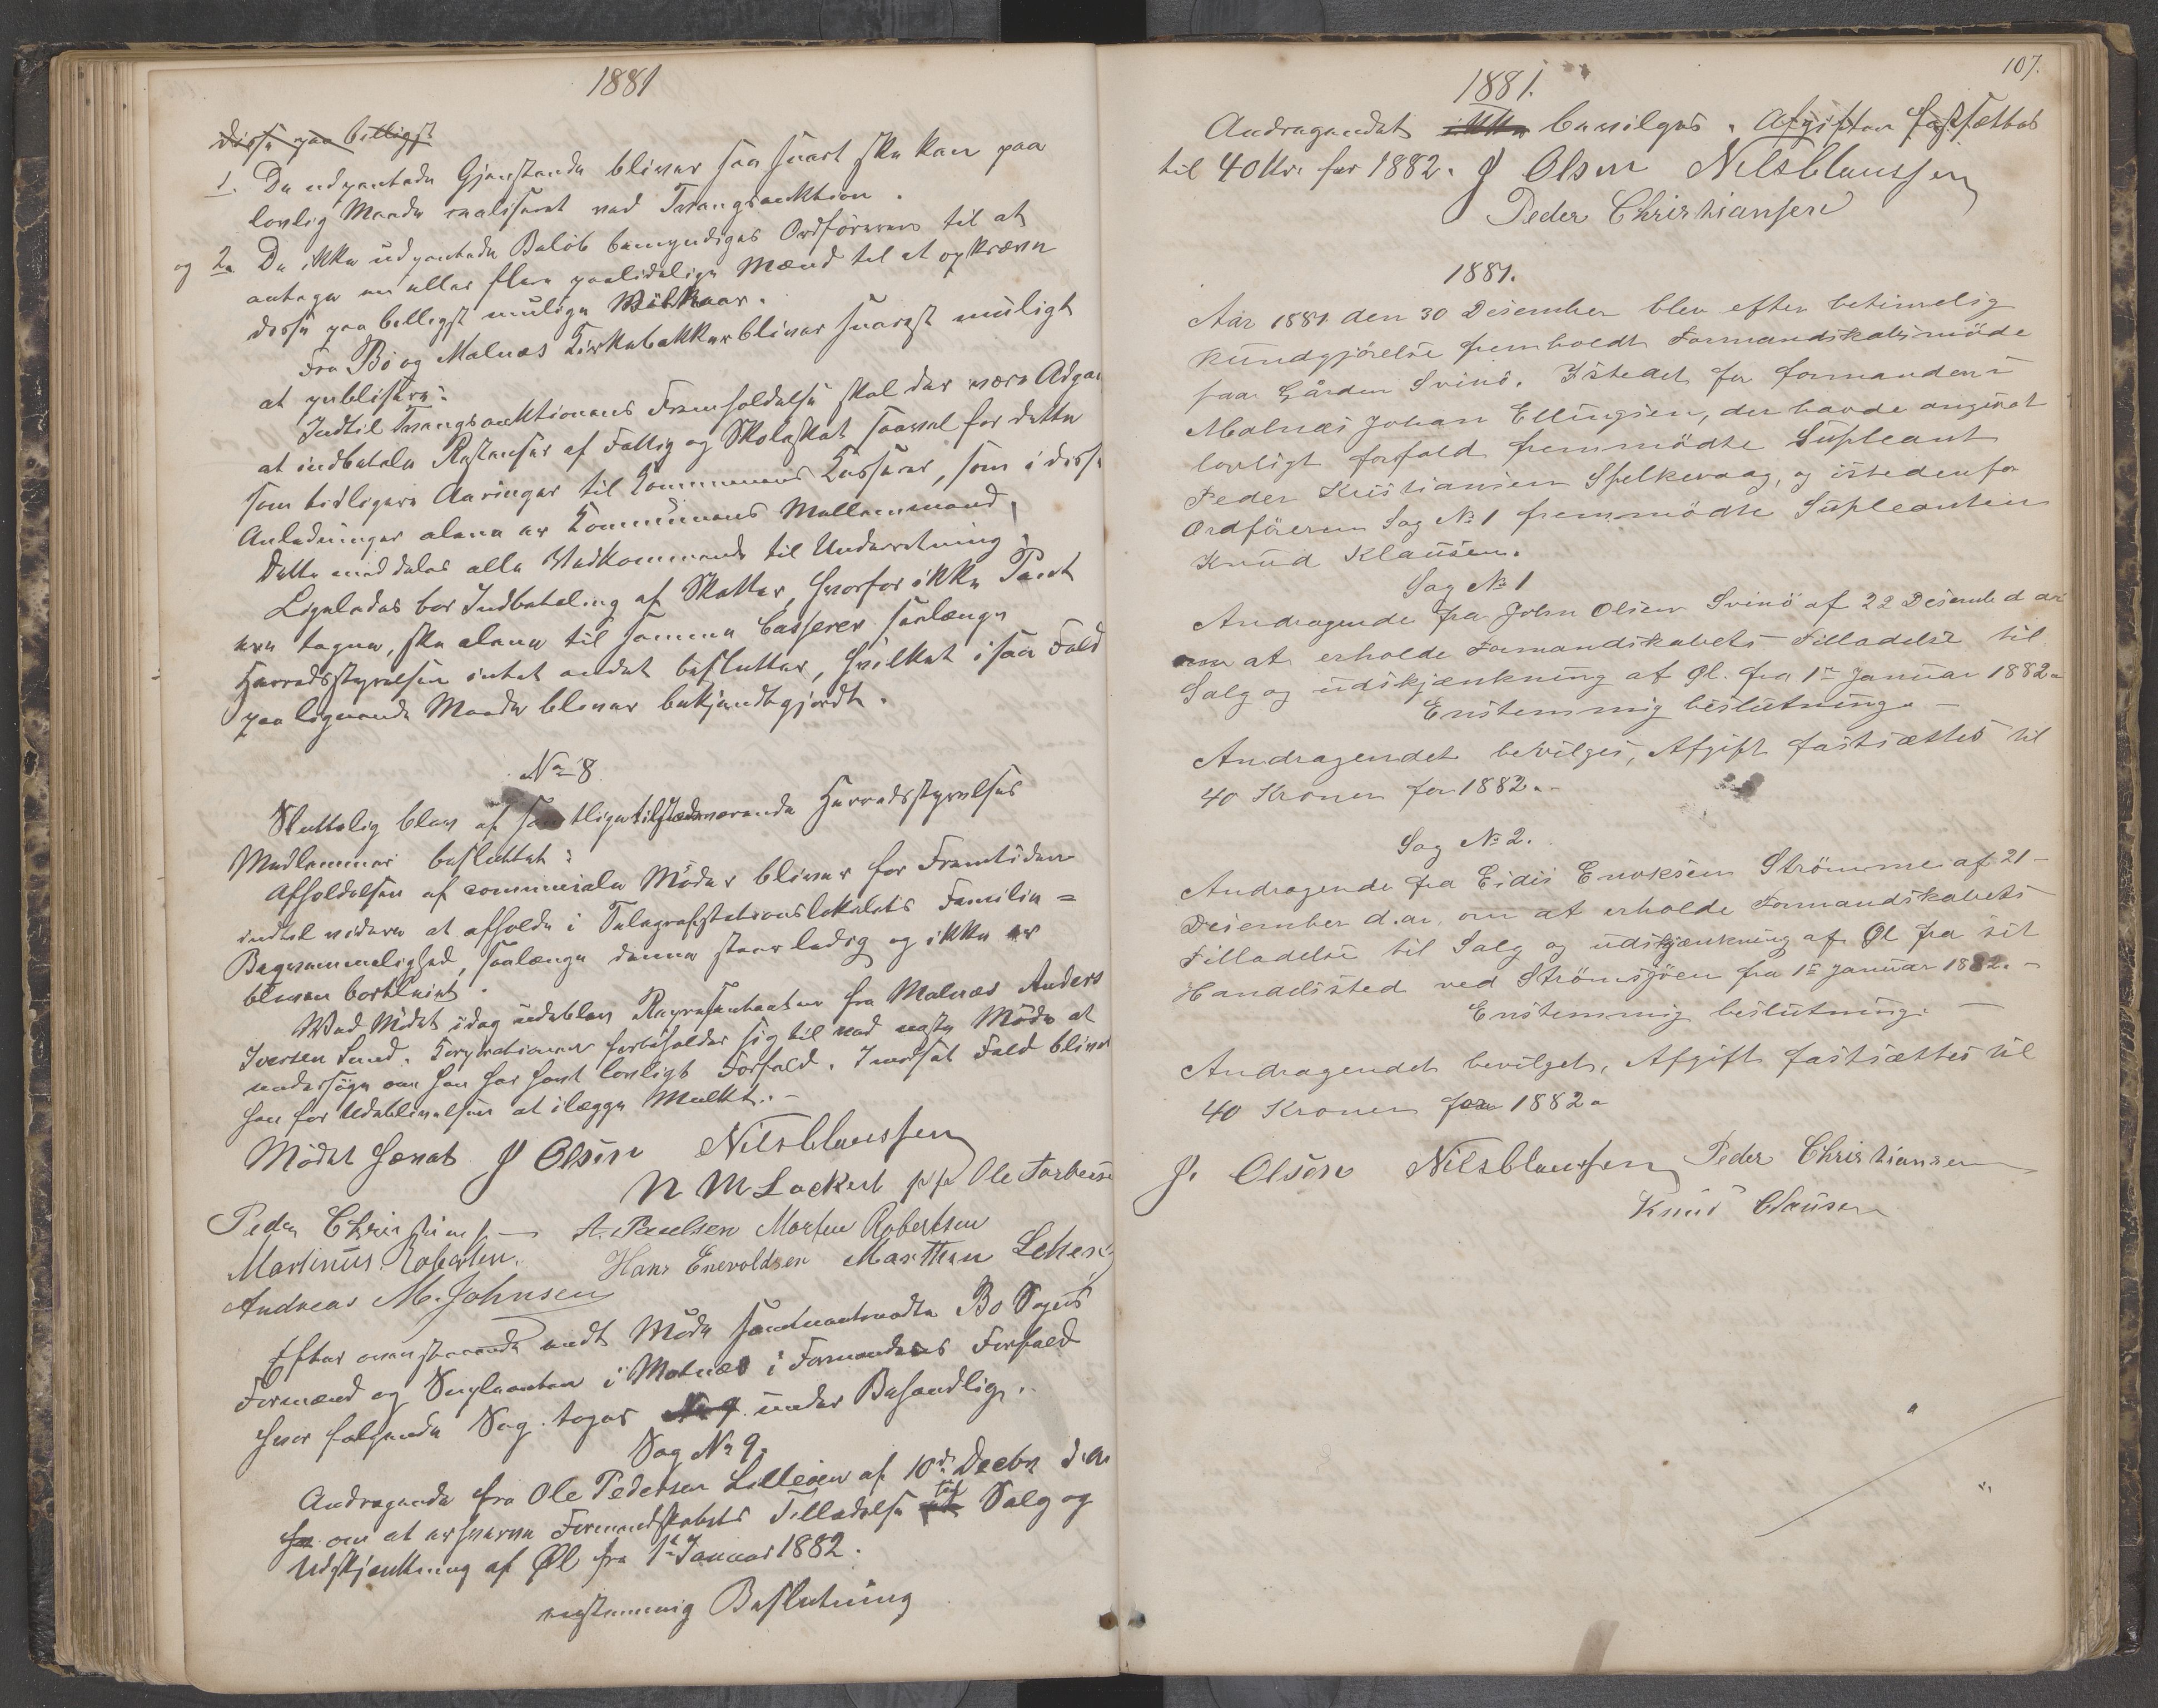 1881
disse paa billigst
1. De udpantede Gjenstande bliver saa snart ske kan paa
lovlig Maade realiseret ved Tvangsauktion.
og 2. De ikke udpantede Beløb bemyndiges Ordføreren til at
antage en eller flere paalidelige Mænd til at opkræve
disse paa billigst mulige Vilkaar.
Fra Bø og Malnæs Kirkebakker bliver snarest muligt
at publisere:
Indtil Tvangsauktionens Fremholdelse skal der være Adgan
at indbetale Restanser af Fattig og Skoleskat saavel for dette
som tidligere Aaringer til Kommunens Kasserer, som i disse
Anledninger alene er Kommunens Mellemmand.
Dette meddeles alle Vedkommende til Underretning.
Ligeledes bør Indbetaling af Skatter, hvorfor ikke Pant
ere tagne, ske alene til samme Casserer saalænge
Herredsstyrelsen intet andet beslutter, hvilket i saa Fald
paa lignende Maade bliver bekjendtgjordt.
No 8
Sluttelig blev af samtlige tilstedeværende Herredsstyrelses
Medlemmer besluttet:
Afholdelsen af communale Møder bliver for Fremtiden
indtil videre at afholde i Telegrafstationslokalets Familie=
Beqvemmelighed, saalænge denne staar ledig og ikke er
bleven bortleiet.
Ved Mødet idag udeblev Repræsentanten fra Malnæs Anders
Iversen Sund. Korporationen forbeholder sig til ved næste Møde at
undersøge om han har havt lovligt Forfald. I modsat Fald bliver
han for Udeblivelsen at ilægge Mulkt. -
Mødet hævet J Olsen NilsClaussen
N M Lockert p/p Ole Torbens
Peder Christians A. Paulsen Morten Robertsen
Martinus Robertsen. Hans Enevoldsen Marthin
Andreas M. Johnsen
Efter ovenstaaende endt Møde sammentraadte Bø Sogns
Formænd og Suppleanten i Malnæs i Formandens Forfald
hvor følgende Sag toges No 9 under Behandlig.
Sag No 9.
Andragende fra Ole Pedersen Lilleøen af 10de Decbr d. A
fra om at erhverve Formandskabets Tilladelse til Salg og
Udskjænkning af Øl fra 1te Januar 1882.
enstemmig Beslutning
107.
1881.
Andragendet ikke bevilges. Afgiften fastsættes
til 40 Kr. for 1882. J Olsen NilsClaussen
Peder Christiansen
1881.
Aar 1881 den 30 Desember blev efter betimelig
kundgjörelse fremholdt Formandskabsmöde
paa Gården Svinö. Istedet for formanden i
Malnæs Johan Ellingsen, der havde angivet
lovligt forfald fremmödte Supleant
Peder Kristiansen Spelkevaag, og istedenfor
Ordförerens Sag No 1 fremmödte Supleanten
Knud Klausen.
Sag No 1
Andragende fra John Olsen Svinö af 22 Desembr d ar
om at erholde Formandskabets Tilladelse til
Salg og udskjænkning af Øl. fra 1ste Januar 1882.
Enstemmig beslutning. -
Andragendet bevilges, Afgift fastsættes til
40 Kroner for 1882. -
Sag No 2.
Andragende fra Eidis Enoksen Strömme af 21 -
Desember d. ar. om at erholde Formandskabets
Tilladelse til Salg og udskjænkning af Øl fra sit
Handelssted ved Strömsjöen fra 1ste Januar 1882. -
Enstemmig beslutning. -
Andragendet bevilget, Afgift fastsættes til
40 Kroner for 1882.
J. Olsen NilsClaussen Peder Christiansen
Knud Clausen